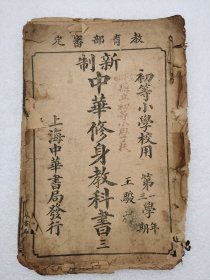 教育部審定
初等小學校用
第三學年
期
新制
中華修身教科書三
上海中華書局發行
王駿